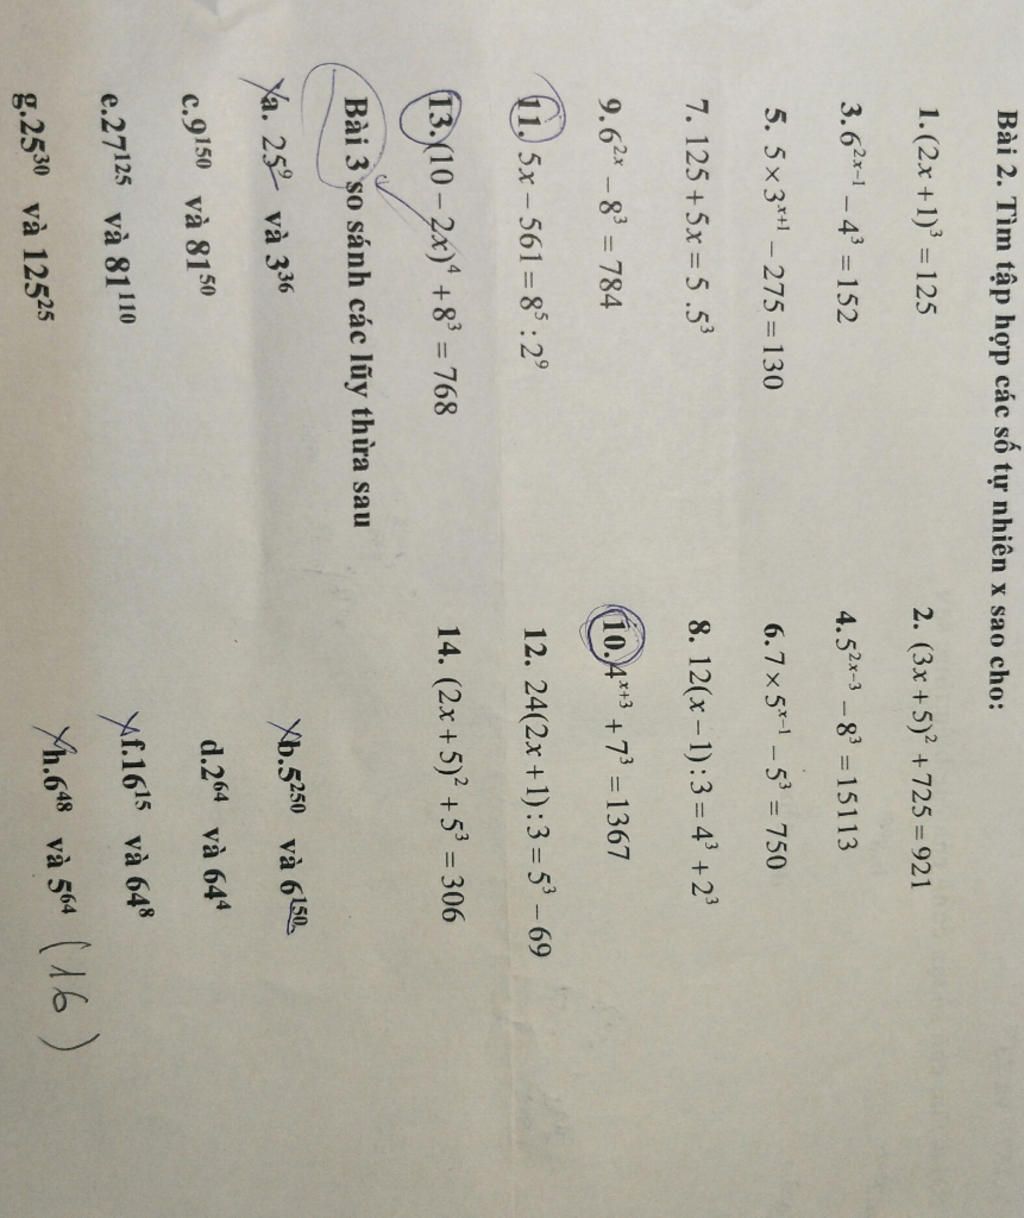 Bài 2. Tìm tập hợp các số tự nhiên x sao cho:
1. (2x + 1)³ = 125 2. (3x + 5)² + 725 = 921
3. 6²ˣ⁻¹ − 4³ = 152 4. 5²ˣ⁻³ − 8³ = 15113
5. 5 × 3ˣ⁺¹ − 275 = 130 6. 7 × 5ˣ⁻¹ − 5³ = 750
7. 125 + 5x = 5 . 5³ 8. 12(x − 1) : 3 = 4³ + 2³
9. 6²ˣ − 8³ = 784 10. 4ˣ⁺³ + 7³ = 1367
11. 5x − 561 = 8⁵ : 2⁹ 12. 24(2x + 1) : 3 = 5³ − 69
13. (10 − 2x)⁴ + 8³ = 768 14. (2x + 5)² + 5³ = 306
Bài 3 so sánh các lũy thừa sau
a. 25⁹ và 3³⁶ b. 5²⁵⁰ và 6¹⁵⁰
c. 9¹⁵⁰ và 81⁵⁰ d. 2⁶⁴ và 64⁴
e. 27¹²⁵ và 81¹¹⁰ f. 16¹⁵ và 64⁸
g. 25³⁰ và 125²⁵ h. 6⁴⁸ và 5⁶⁴ (16)